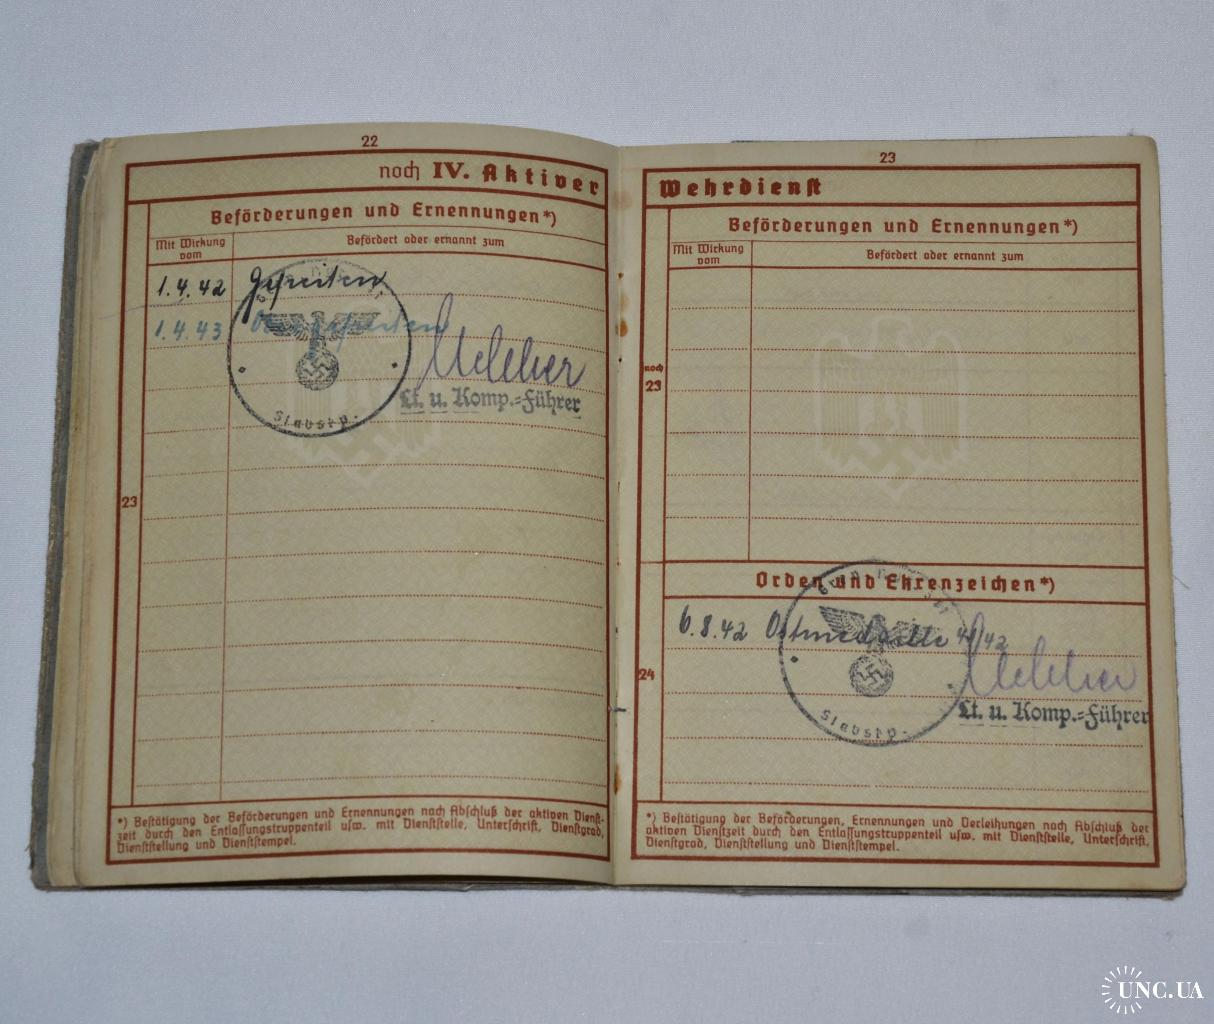 22
noch IV. Aktiver
Beförderungen und Ernennungen*)
Mit Wirkung vom
Befördert oder ernannt zum
1.4.42 Gefreiten
1.4.43 Obergefreiten
Lt. u. Komp.=Führer
Stabskp.
23
*) Bestätigung der Beförderungen und Ernennungen nach Abschluß der aktiven Dienst-
zeit durch den Entlassungstruppenteil usw. mit Dienststelle, Unterschrift, Dienstgrad,
Dienststellung und Dienststempel.
23
Wehrdienst
Beförderungen und Ernennungen*)
Mit Wirkung vom
Befördert oder ernannt zum
noch
23
Orden und Ehrenzeichen*)
6.8.42 Ostmedaille 41/42
24
Lt. u. Komp.=Führer
Stabskp.
*) Bestätigung der Beförderungen, Ernennungen und Verleihungen nach Abschluß der
aktiven Dienstzeit durch den Entlassungstruppenteil usw. mit Dienststelle, Unterschrift,
Dienstgrad, Dienststellung und Dienststempel.
UNC.UA